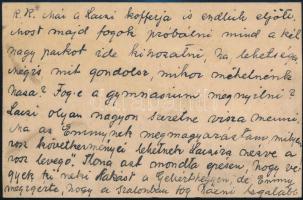 K.K. Mai a Laszi kofferja is endlich eljött
most majd fogok próbálni mind a két
nagy parkot ide kihozatni, ha lehetséges
Mégis mit gondolsz, mikor mehetnénk
haza? Fog-e a gymnasium megnyílni?
Laszi olyan nagyon szeretne vissza menni
ha az Emmynek megmagyaráztam, milyen
rosz következményei lehetnek Laszira nézve a
rosz levegő. Ilona azt mondta épen, hogy
gyek ki nézni lakást a Gellérthegyen, de Emmy
megigérte, hogy a szalonban fog főzni legalább